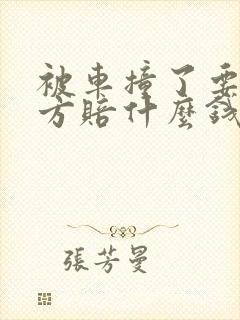 被車撞了要
方賠什麼錢
張芳曼